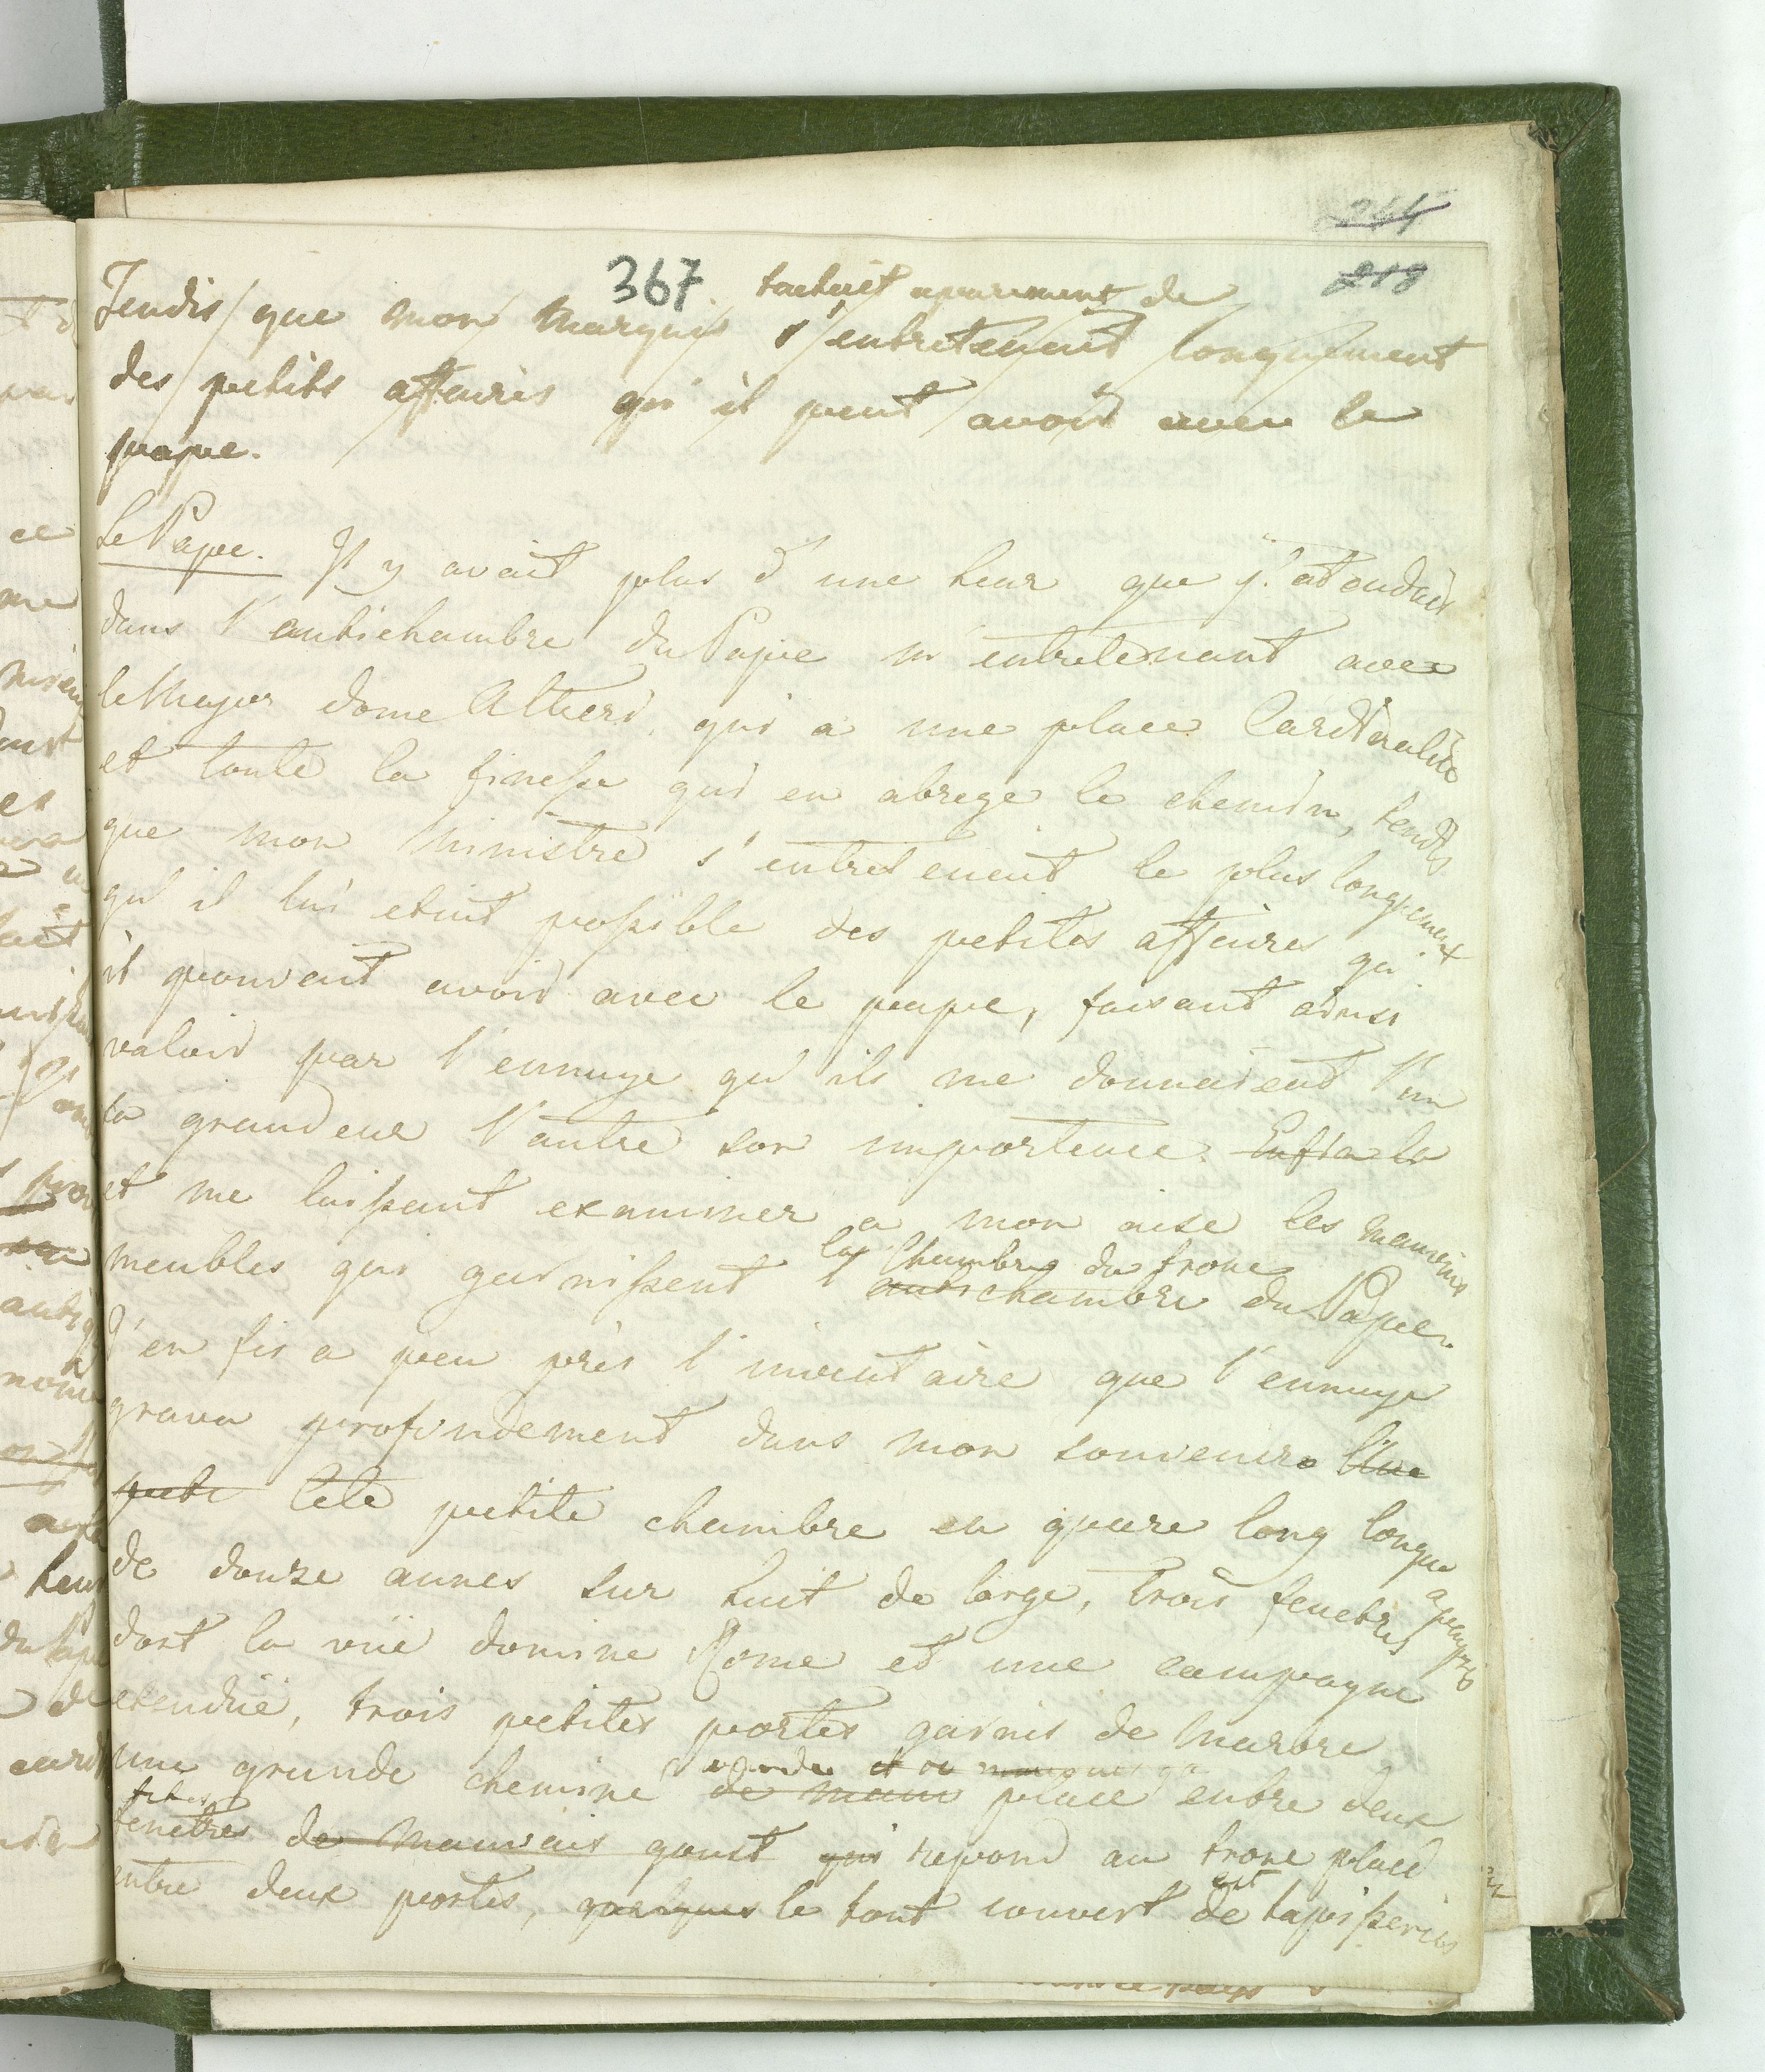 244
218
367. tachait apurement de
Tendis que mon marquis s'entretenent longuement
des petits affaires qu'il peut avoir avec le
pape.
Le Pape. Il y avait plus d'une heur que j'atendais
dans l'antichambre du Pape m'entretenant avec
le Mayor dome Altieri qui a une place Cardinalice
et toute la finesse qui en abrege le chemin, tendis
que mon ministre s'entretenent le plus longuement
qu'il lui etait possible des petites affaires qu'
il pouvait avoir avec le pape, faisant ainsi
valoir par l'ennuye qu'ils me donnaient l'un
sa grandeur l'autre son importence. Enfin la
et me laissant examiner a mon aise les mauvais
meubles qui garnissent l'antichambre du Pape.
la Chambre du trone
J'en fis a peu près l'inventaire que l'ennuye
grava profondement dans mon souvenir. Une
petite Cete petite chambre en quare long longue a peu près
de douze aunes sur huit de large, trois fenetres
dont la vüe domine Rome et une campagne
etendüe, trois petites portes garnis de marbre
une grande cheminé de mauv placé entre deux
fenetres de mauvais goust qui repond au trone placé
entre deux portes, quelques le tout couvert de tapisseries
est